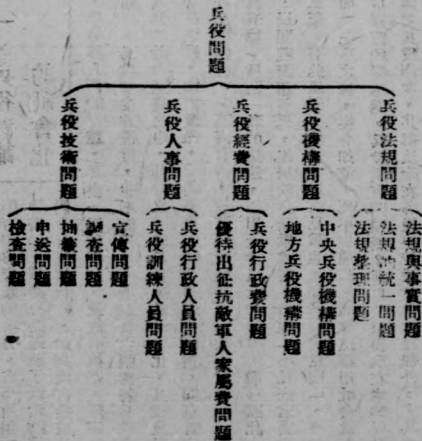 兵役問題
兵役法規問題
法規與事實問題
法規的統一問題
法規整理問題
兵役機構問題
中央兵役機構問題
地方兵役機構問題
兵役經費問題
兵役行政費問題
優待出征抗敵軍人家屬費問題
兵役人事問題
兵役行政人員問題
兵役訓練人員問題
兵役技術問題
宣傳問題
調查問題
抽籤問題
申送問題
檢查問題